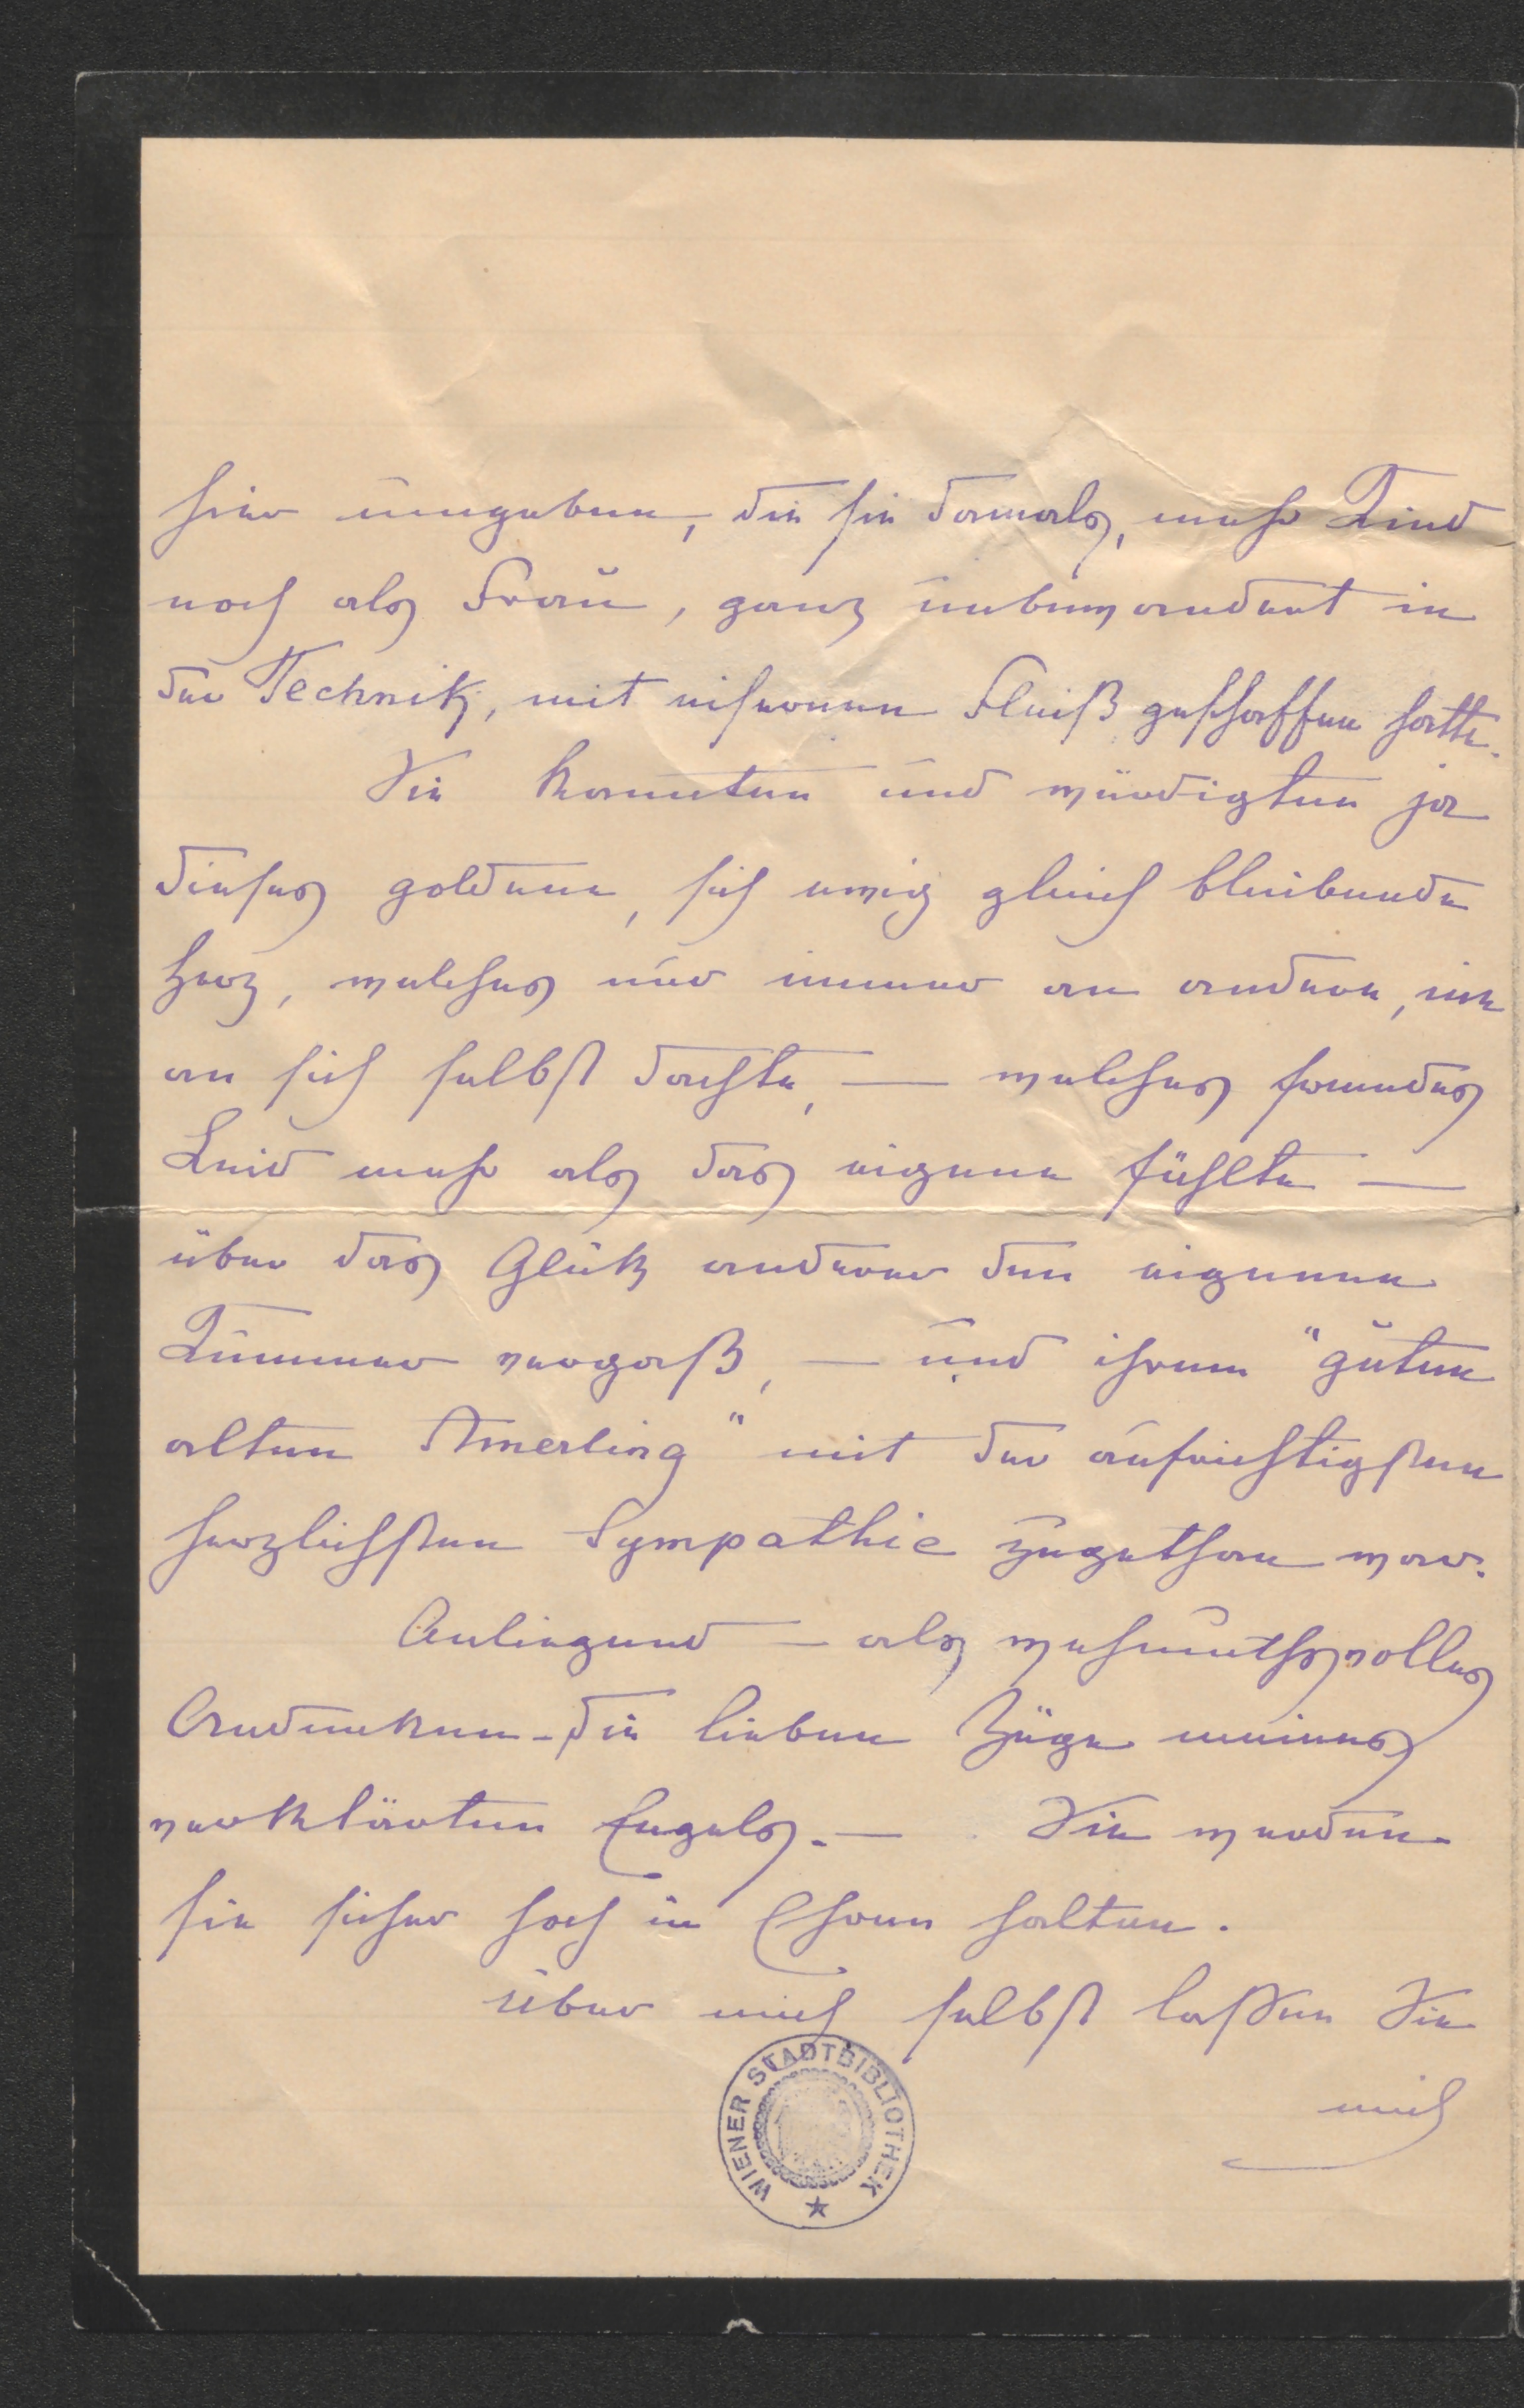 hier umgeben, die sie damals, mehr Kind
noch als Frau, ganz unbewandert in
der Technik, mit eisernem Fleiß geschaffen hatte.
Sie kannten und würdigten ja
dieses goldene, sich ewig gleich bleibende
Herz, welches nur immer an andere, nie
an sich selbst dachte, — welches fremdes
Leid mehr als das eigene fühlte —
über das Glük anderer den eigenen
Kummer vergaß, — und ihrem "guten
alten Amerling" mit der aufrichtigsten
herzlichsten Sympathie zugethan war.
Anliegend — als wehmuthsvolles
Andenken - die lieben Züge meines
verklärten Engels. — Sie werden
sie sicher hoch in Ehren halten.
Über mich selbst lassen Sie
mich
WIENER STADTBIBLIOTHEK